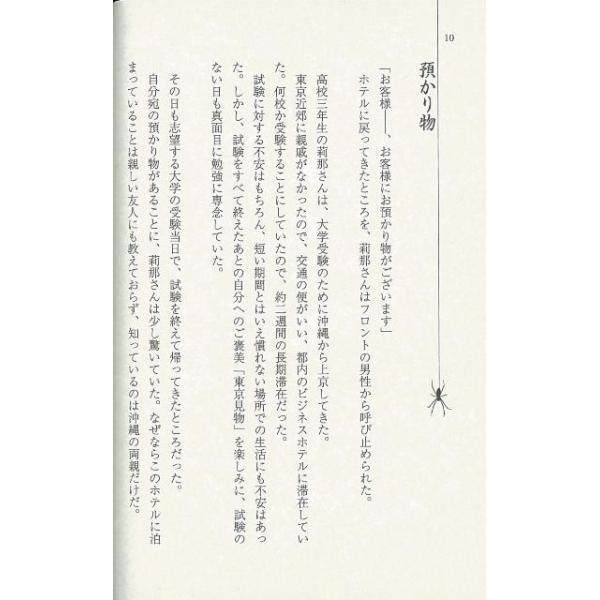 10
預かり物
「お客様――、お客様にお預かり物がございます」
ホテルに戻ってきたところを、莉那さんはフロントの男性から呼び止められた。
高校三年生の莉那さんは、大学受験のために沖縄から上京してきた。
東京近郊に親戚がなかったので、交通の便がいい、都内のビジネスホテルに滞在してい
た。何校か受験することにしていたので、約二週間の長期滞在だった。
試験に対する不安はもちろん、短い期間とはいえ慣れない場所での生活にも不安はあっ
た。しかし、試験をすべて終えたあとの自分へのご褒美「東京見物」を楽しみに、試験の
ない日も真面目に勉強に専念していた。
その日も志望する大学の受験当日で、試験を終えて帰ってきたところだった。
自分宛の預かり物があることに、莉那さんは少し驚いていた。なぜならこのホテルに泊
まっていることは親しい友人にも教えておらず、知っているのは沖縄の両親だけだ。